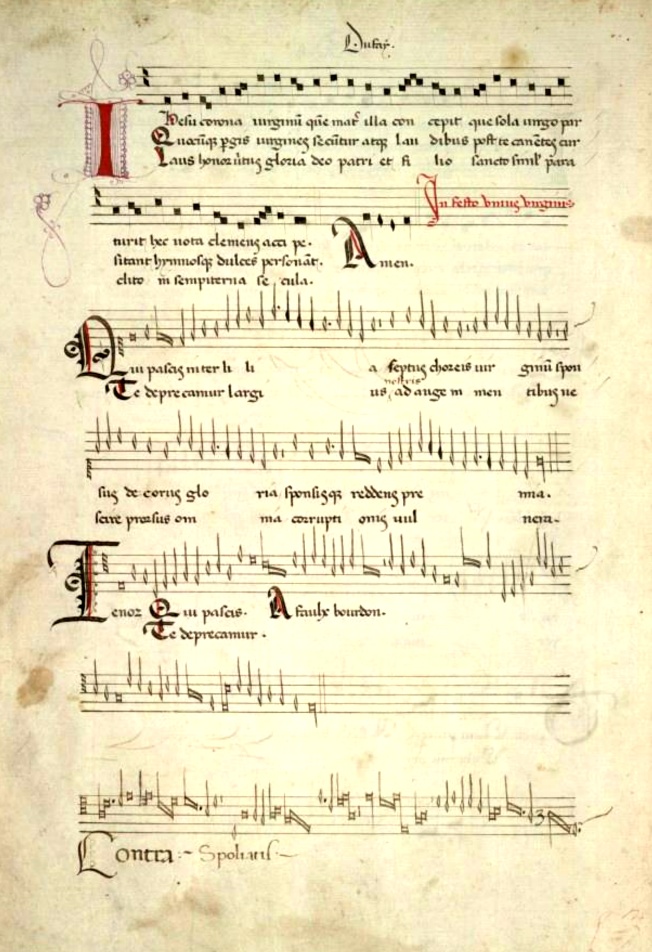 Dufay.
Jhesu corona virginū quē mat̄ illa con cepit que sola virgo par
Quocūq; pgis virgines secūtur atq; lau dibus post te canētes cur
Laus honor v̓tus gloria deo patri et fi lio sancto simlʼ para
In festo vnius virginis
turit hec uota clemens acci pe.
sitant hymnosq; dulces personāt. Amen.
clito in sempiterna se cula.
Qui pascis inter li li a septus choreis vir ginū spon
nostris
Te deprecamur largi us, ad auge in men tibus ne
sus de corus glo ria sponsisq; reddens pre mia.
scire prorsus om nia corrupti onis vul nera.
Tenor Qui pascis. A faulx bourdon.
Te deprecamur.
Contra :~ Spoliatis.~